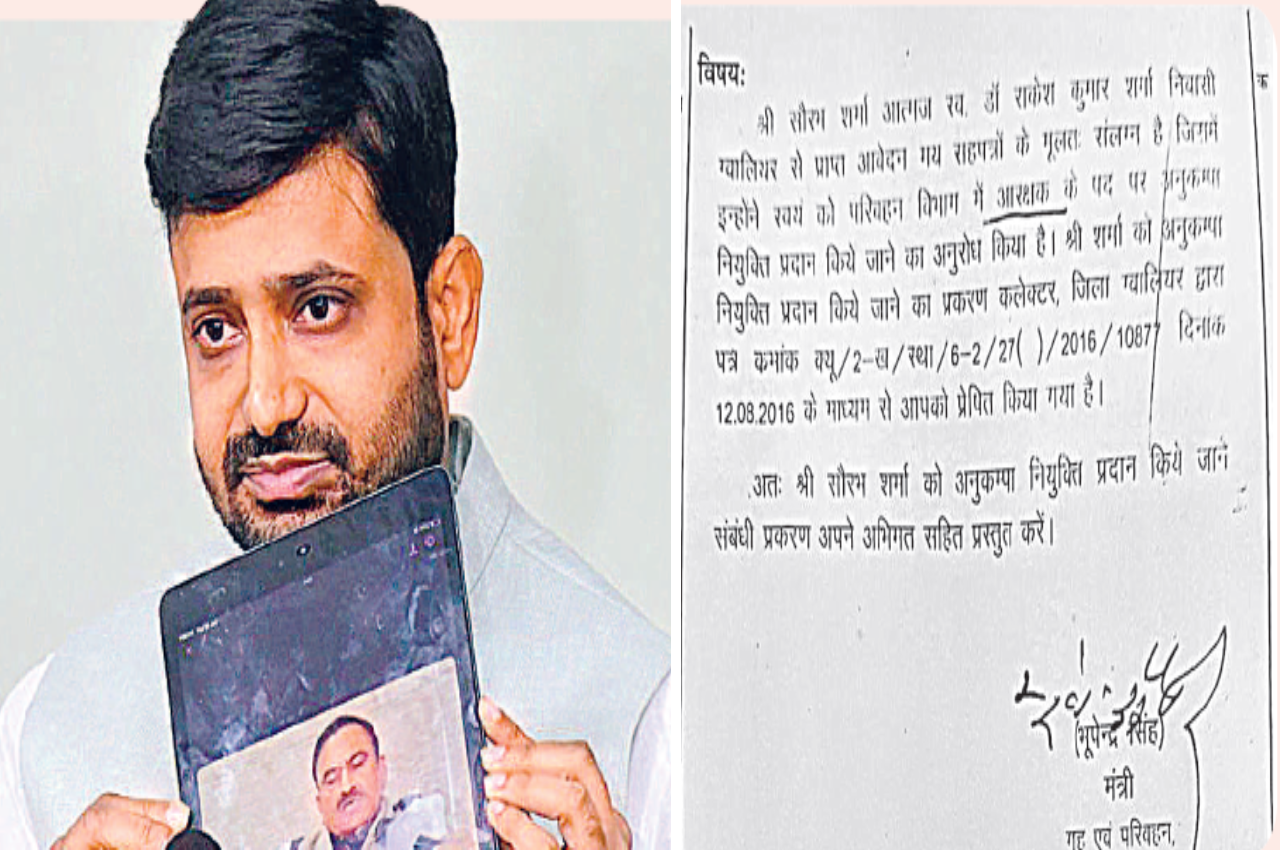 विषयः
श्री सौरभ शर्मा आत्मज स्व. डॉ राकेश कुमार शर्मा निवासी
ग्वालियर से प्राप्त आवेदन मय सहपत्रों के मूलतः संलग्न है जिसमें
इन्होने स्वयं को परिवहन विभाग में आरक्षक के पद पर अनुकम्पा
नियुक्ति प्रदान किये जाने का अनुरोध किया है। श्री शर्मा को अनुकम्पा
नियुक्ति प्रदान किये जाने का प्रकरण कलेक्टर, जिला ग्वालियर द्वारा
पत्र कमांक क्यू/2-ख/स्था/6-2/27( )/2016/10877 दिनांक
12.08.2016 के माध्यम से आपको प्रेषित किया गया है।
अतः श्री सौरभ शर्मा को अनुकम्पा नियुक्ति प्रदान किये जाने
संबंधी प्रकरण अपने अभिमत सहित प्रस्तुत करें।
(भूपेन्द्र सिंह)
मंत्री
गृह एवं परिवहन,